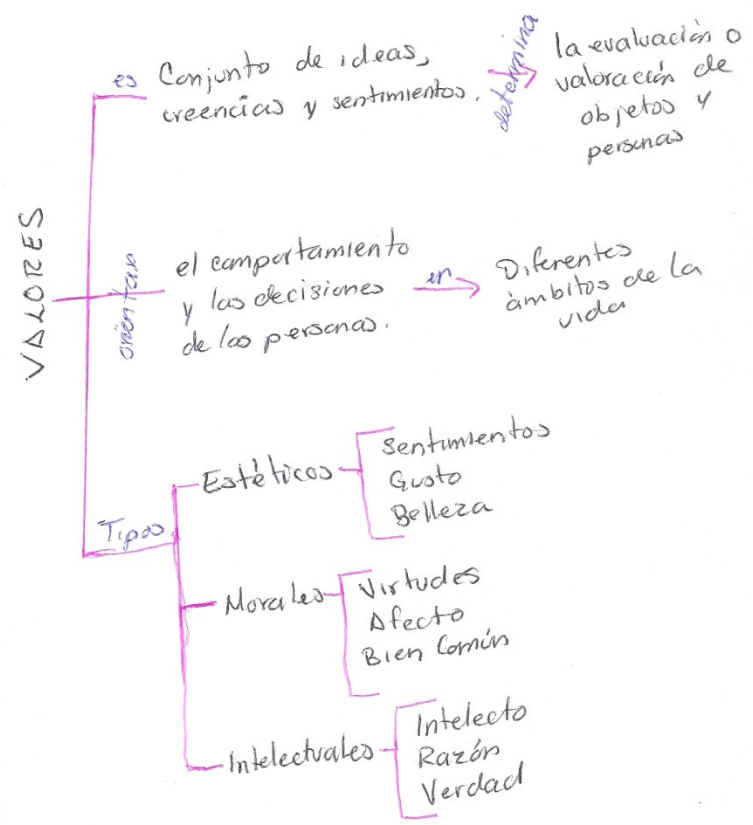 VALORES
es
Conjunto de ideas,
creencias y sentimientos.
determina
la evaluación o
valoración de
objetos y
personas
orientan
el comportamiento
y las decisiones
de las personas.
en
Diferentes
ámbitos de la
vida
Tipos
Estéticos
Sentimientos
Gusto
Belleza
Morales
Virtudes
Afecto
Bien Común
Intelectuales
Intelecto
Razón
Verdad